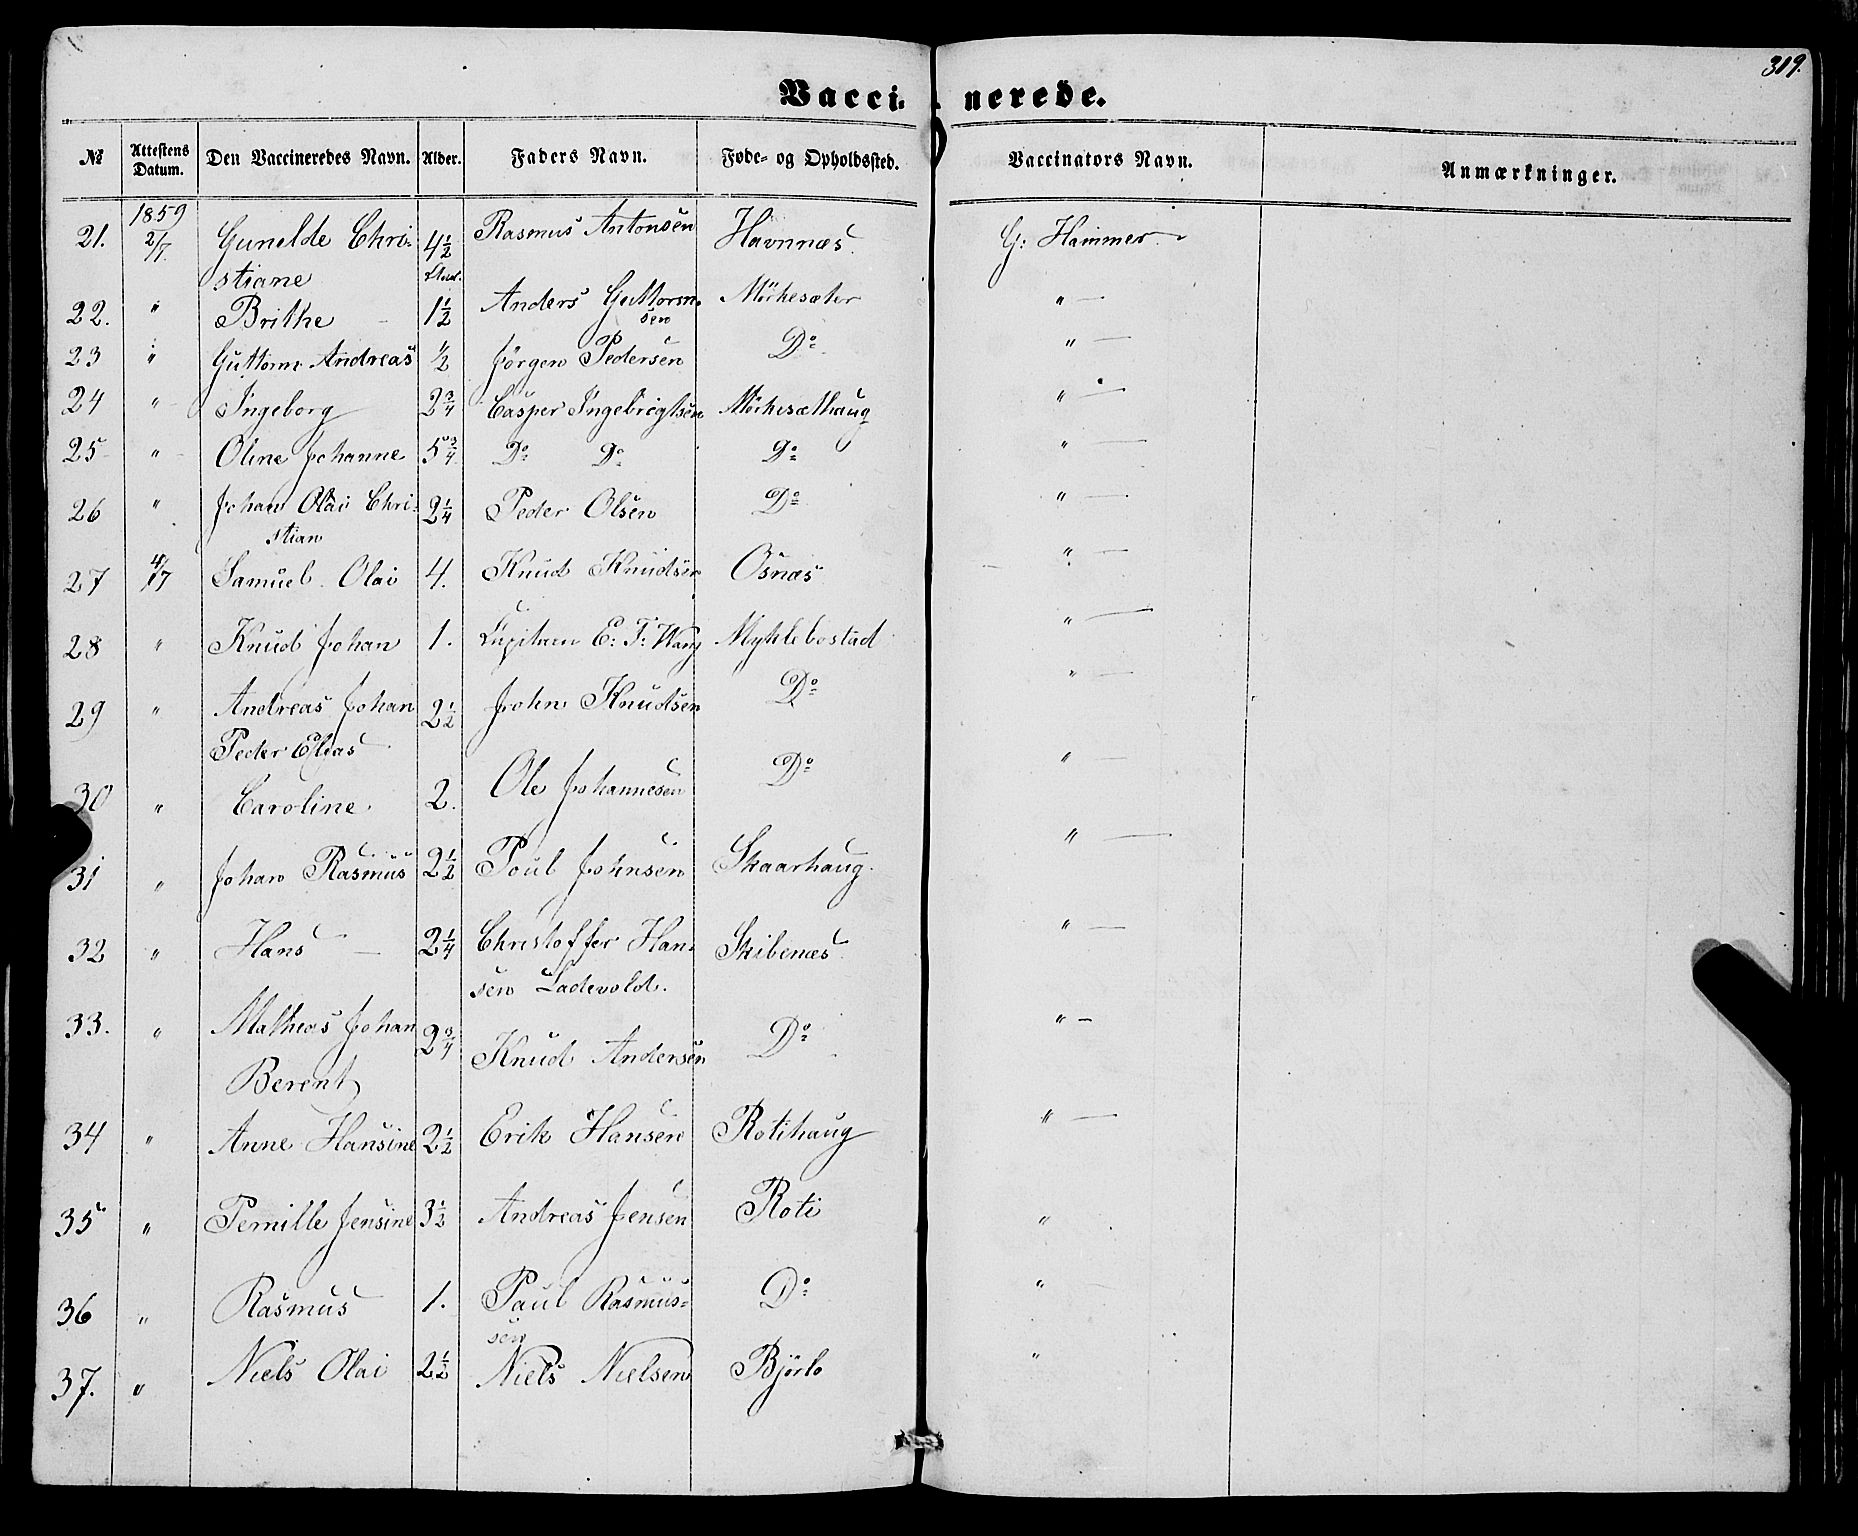 319.
Vaccinerede.
№ Attestens Datum. Den Vaccineredes Navn. Alder. Faders Navn. Føde- og Opholdssted. Vaccinators Navn. Anmærkninger.
1859
21. 2/7. Gunelde Chri- 4½ Rasmus Antonsen Havnnæs. G: Hammer.
stiane
22. " Brithe 1½ Anders Guttorm- Mörkesæter " —
sen
23 " Guttorm Andreas ½ Jörgen Pedersen Do " —
24 " Ingeborg 2¾ Casper Ingebrigtsen Mörkesæthaug " —
25 " Oline Johanne 5¾ Do Do Do " —
26 " Johan Olai Chri- 2¼ Peder Olsen Do " —
stian
27 4/7 Samuel Olai 4. Knud Knudsen Osnæs " —
28 " Knud Johan 1. E: T: Wang Myklebostad " —
29 " Andreas Johan 2½ John Knudsen Do " —
Peder Elias
30 " Caroline 2. Ole Johannesen Do " —
31 " Johan Rasmus 2½ Poul Johnsen Skaarhaug. " —
32 " Hans — 2¼ Christoffer Han- Skibenæs " —
sen Ladevold.
33. " Matheas Johan 2¾ Knud Andersen Do " —
Berent
34 " Anne Hansine 2½ Erik Hansen Rotihaug " —
35 " Pernille Jensine 3½ Andreas Jensen Roti "
36 " Rasmus 1. Paul Rasmus- Do "
sen
37. " Niels Olai 2½ Niels Nielsen Björlo "